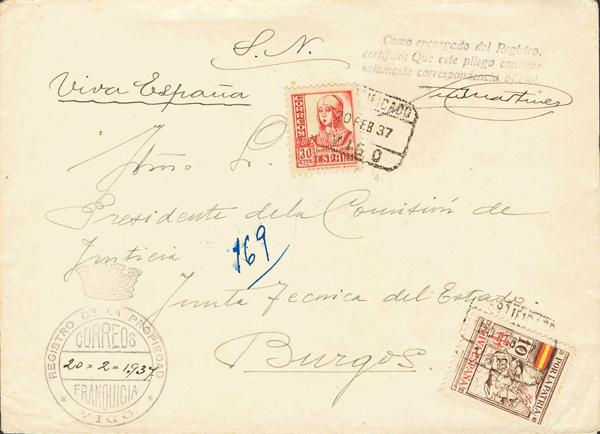 S. N.
Viva España
Como encargado del Registro,
certifico: Que este pliego contiene
solamente correspondencia oficial.
CORREOS
30
CTS.
ESPAÑA
CERTIFICADO
20 FEB 37
VIGO
Iltmo Sr.
Presidente de la Comisión de
Justicia
169
Junta Tecnica del Estado.
Burgos.
REGISTRO DE LA PROPIEDAD
CORREOS
20-2-1.937
FRANQUICIA
VIGO
CERTIFICADO
10
VIVA ESPAÑA
POR LA PATRIA